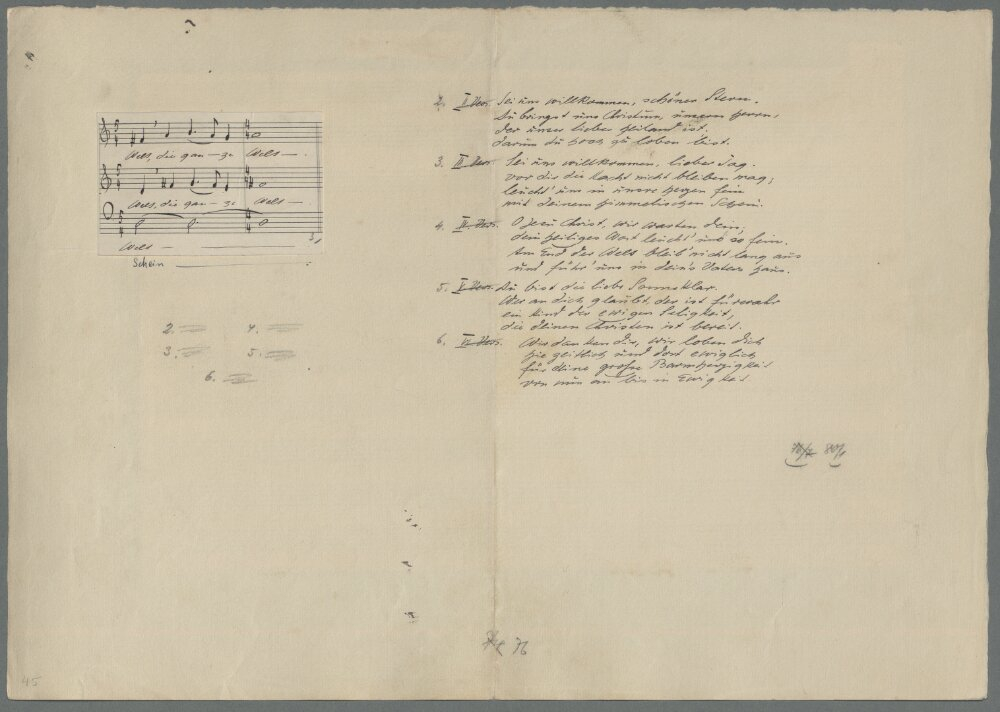 Welt, die gan – ze Welt – .
Welt, die gan – ze Welt – .
Welt –
Schein
2.
4.
3.
5.
6.
2. II Vers. Sei uns willkommen, schöner Stern.
Du bringst uns Christum, unsern Herrn,
der unser lieber Heiland ist.
darum du hoch zu loben bist.
3. III Vers. Sei uns willkommen, lieber Tag.
vor dir die Nacht nicht bleiben mag;
leucht' uns in unsre Herzen fein
mit deinem himmelischen Schein.
4. IV. Vers. O Jesu Christ, wir warten dein,
dein heiliges Wort leucht' uns so fein.
Am End der Welt bleib' nicht lang aus
und führ' uns in dein's Vaters Haus.
5. V Vers. Du bist die liebe Sonne klar.
Wer an dich glaubt, der ist fürwahr
ein Kind der ewigen Seligkeit,
die deinen Christen ist bereit.
6. VI Vers. Wir danken dir, wir loben dich
hie zeitlich und dort ewiglich
für deine große Barmherzigkeit
von nun an bis in Ewigkeit
80/1
76
45